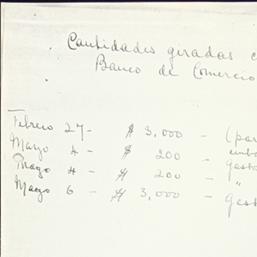 Cantidades giradas c
Banco de Comercio
Febrero 27- $ 3,000 - (par
Mayo 4- $ 200 - emba
Mayo 4- $ 200 - gasto
Mayo 6 - $ 3,000 - gast